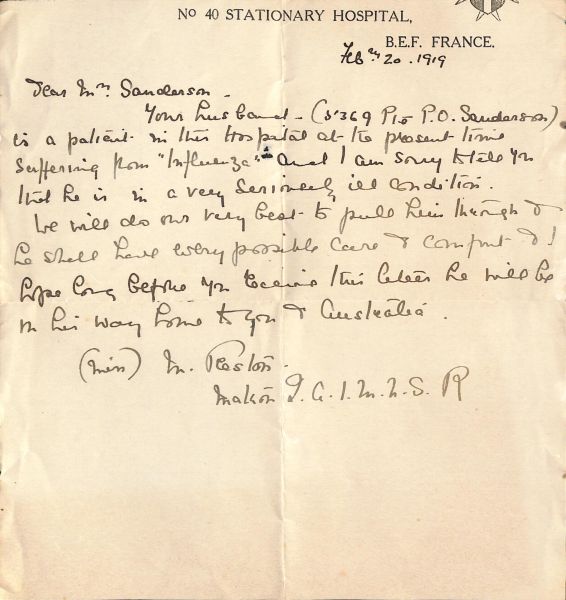 No 40 STATIONARY HOSPITAL,
B.E.F. FRANCE.
Feby. 20. 1919
Dear Mrs Sanderson.
Your husband - (5369 Pte P.O. Sanderson)
is a patient in this Hospital at the present time
suffering from "Influenza" and I am sorry to tell you
that he is in a very seriously ill condition.
We will do our very best to pull him through &
he shall have every possible care & comfort & I
hope long before you receive this letter he will be
on his way home to you & Australia.
(Miss) M.
Matron Q.A.I.M.N.S. R